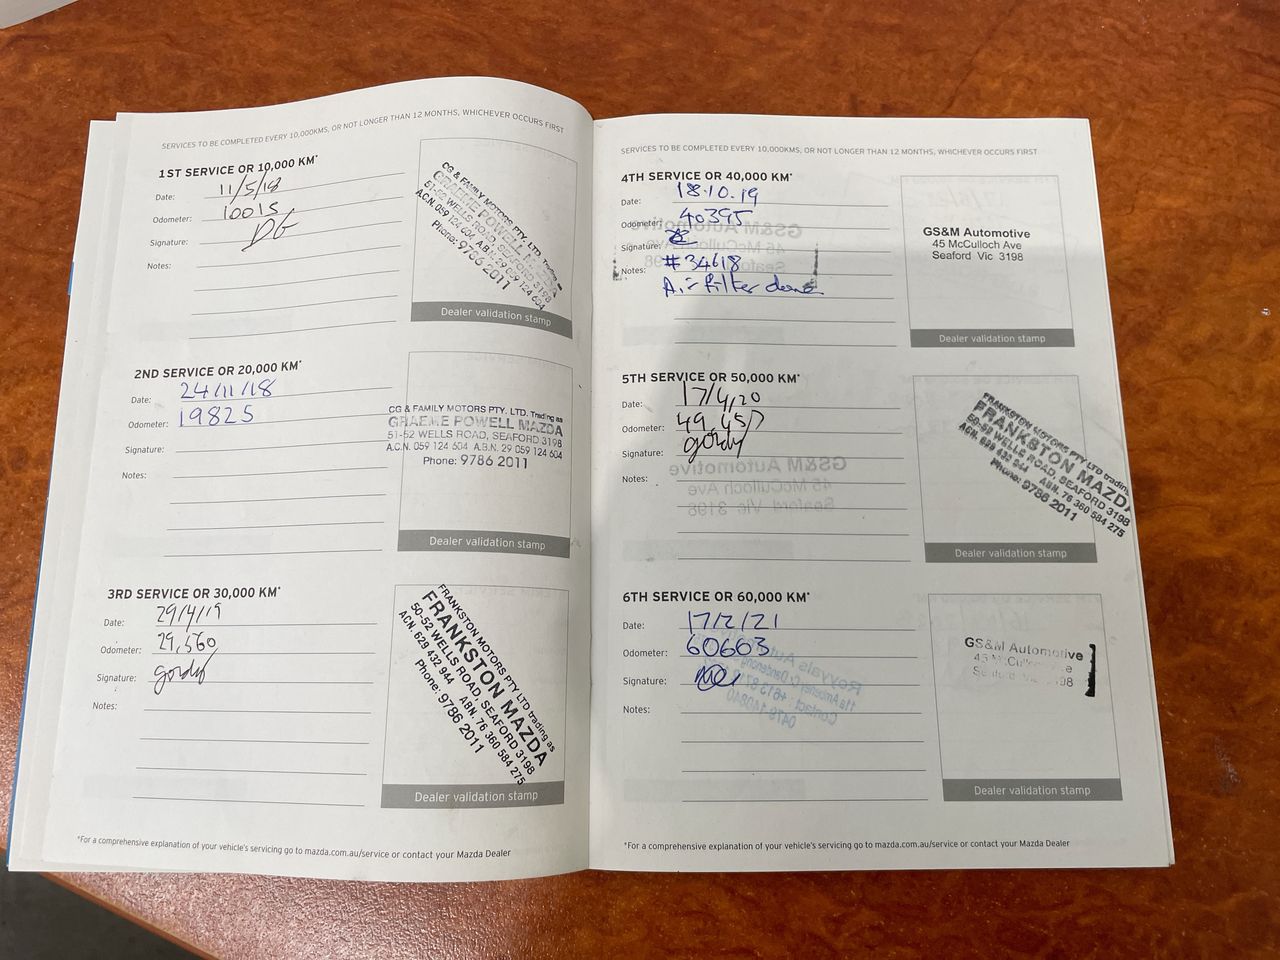 SERVICES TO BE COMPLETED EVERY 10,000KMS, OR NOT LONGER THAN 12 MONTHS, WHICHEVER OCCURS FIRST
1ST SERVICE OR 10,000 KM*
Date: 11/5/18
Odometer: 10015
Signature: DG
Notes:
CG & FAMILY MOTORS PTY. LTD. Trading as
GRAEME POWELL MAZDA
51-52 WELLS ROAD, SEAFORD 3198
A.C.N. 059 124 504 A.B.N. 29 059 124 504
Phone: 9786 2011
Dealer validation stamp
2ND SERVICE OR 20,000 KM*
Date: 24/11/18
Odometer: 19825
Signature:
Notes:
CG & FAMILY MOTORS PTY. LTD. Trading as
GRAEME POWELL MAZDA
51-52 WELLS ROAD, SEAFORD 3198
A.C.N. 059 124 504 A.B.N. 29 059 124 504
Phone: 9786 2011
Dealer validation stamp
3RD SERVICE OR 30,000 KM*
Date: 29/4/19
Odometer: 29,560
Signature: gordy
Notes:
FRANKSTON MOTORS PTY LTD trading as
FRANKSTON MAZDA
50-52 WELLS ROAD, SEAFORD 3198
ACN. 629 432 944 ABN. 76 360 584 275
Phone: 9786 2011
Dealer validation stamp
*For a comprehensive explanation of your vehicle's servicing go to mazda.com.au/service or contact your Mazda Dealer
SERVICES TO BE COMPLETED EVERY 10,000KMS, OR NOT LONGER THAN 12 MONTHS, WHICHEVER OCCURS FIRST
4TH SERVICE OR 40,000 KM*
Date: 18.10.19
Odometer: 40395
Signature:
Notes: #34618
Air filter done
GS&M Automotive
45 McCulloch Ave
Seaford Vic 3198
Dealer validation stamp
5TH SERVICE OR 50,000 KM*
Date: 17/4/20
Odometer: 49,457
Signature: gordy
Notes:
FRANKSTON MOTORS PTY LTD trading
FRANKSTON MAZDA
50-52 WELLS ROAD, SEAFORD 3198
ACN. 629 432 944 ABN. 76 360 584 275
Phone: 9786 2011
Dealer validation stamp
6TH SERVICE OR 60,000 KM*
Date: 17/2/21
Odometer: 60603
Signature:
Notes:
GS&M Automotive
45 McCulloch Ave
Seaford Vic 3198
Dealer validation stamp
*For a comprehensive explanation of your vehicle's servicing go to mazda.com.au/service or contact your Mazda Dealer